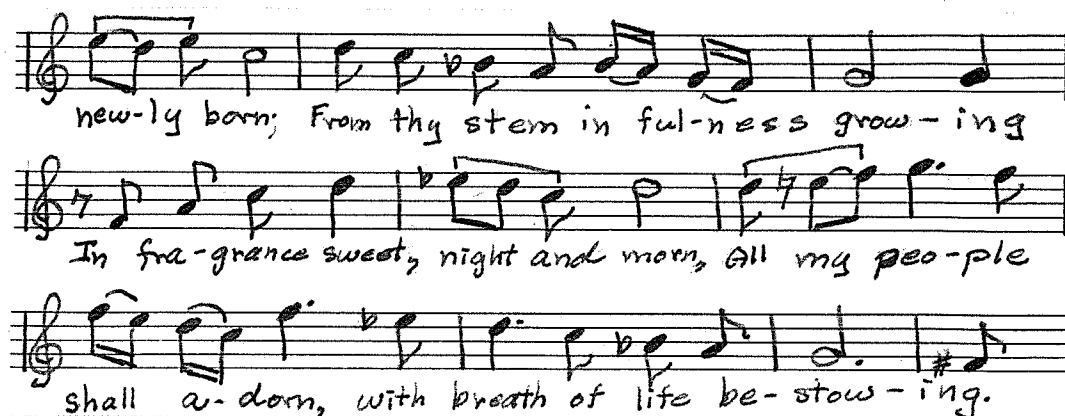 new-ly born; From thy stem in ful-ness grow-ing
In fra-grance sweet, night and morn, All my peo-ple
shall a-dorn, with breath of life be-stow-ing.